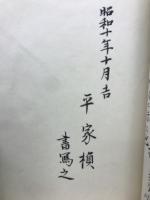 昭和十年十月吉
平家槙
書写之